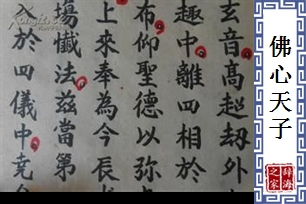 佛心天子
辞海
之家
玄音高超劫外
趣中離四相於
布仰聖德以弥
上來奉為今長
場懺法兹當第
入於四儀中堯